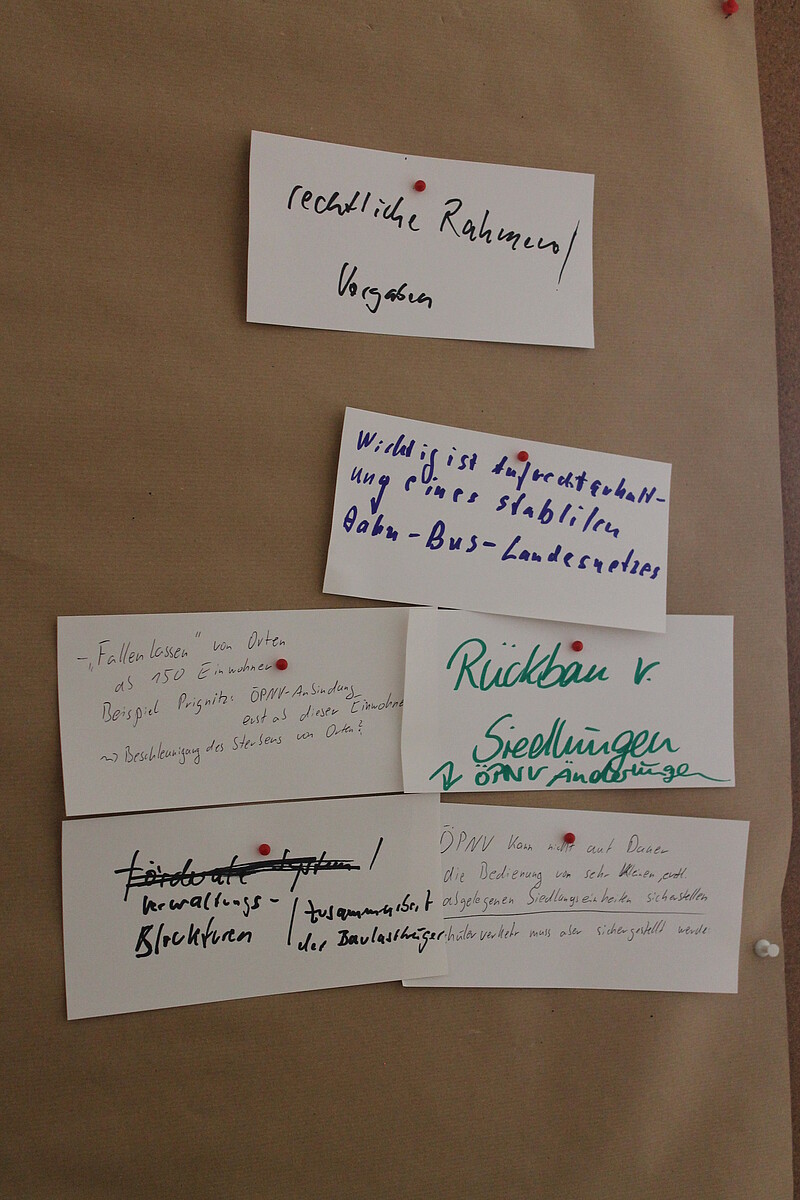 rechtliche Rahmen/
Vorgaben
Wichtig ist Aufrechterhalt-
ung eines stabilen
Bahn-Bus-Landesnetzes
- „Fallenlassen" von Orten
ab 150 Einwohner
Beispiel Prignitz: ÖPNV-Anbindung
erst ab dieser Einwohne
~> Beschleunigung des Sterbens von Orten?
Rückbau v.
Siedlungen
ÖPNV Änderungen
System /
Verwaltungs-
Strukturen
/ Zusammenarbeit
der Baulastträger
ÖPNV kann nicht auf Dauer
die Bedienung von sehr kleinen, evtl.
abgelegenen Siedlungseinheiten sicherstellen
hülerverkehr muss aber sichergestellt werde